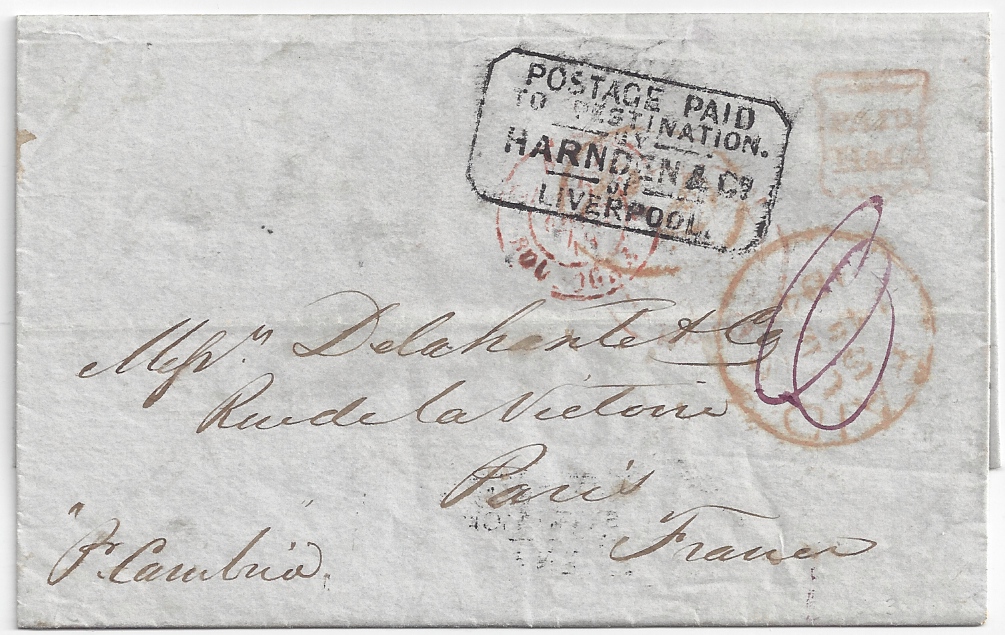 POSTAGE PAID
TO DESTINATION.
BY
HARNDEN & Co
OF
LIVERPOOL.
PAID
Messrs. Delahante & Co
Rue de la Victoire
Paris
France
"Pr. Cambria"